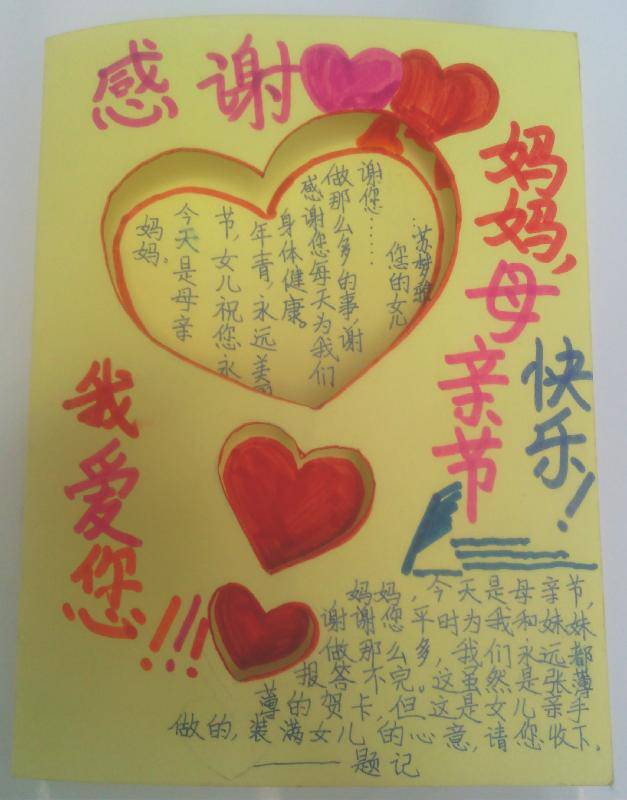 感谢
妈妈,母亲节
快乐!
妈妈。
今天是母亲
节,女儿祝您永
年青,永远美
身体健康。
感谢您每天为我们
做那么多的事,谢
谢您……
您的女儿
…苏梦
我爱您!!!
妈妈,今天是母亲节,
谢谢您平时为我和妹妹
做那么多,我们永远都
报答不完。这虽然是张薄
薄的贺卡,但这是女儿亲手
做的,装满女儿的心意,请您收下。
——题记